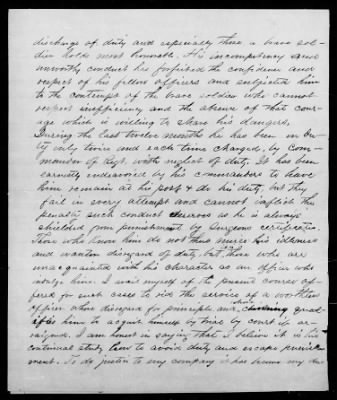 discharge of duty and especially those a brave sol-
dier holds most honorable. His incompetency and
unworthy conduct has forfeited the confidence and
respect of his fellow officers and subjected him
to the contempt of the brave soldier who cannot
respect inefficiency and the absence of that cour-
age which is willing to share his dangers.
During the last twelve months he has been on du-
ty only twice and each time charged, by Com-
mander of Regt. with neglect of duty. It has been
earnestly endeavored by his commanders to have
him remain at his post & do his duty, but they
fail in every attempt and cannot inflict the
penalty such conduct deserves as he is always
shielded from punishment by Surgeons certificates.
Those who know him do not thus nurse his idleness
and wanton disregard of duty, but those who are
unacquainted with his character as an officer who
indulge him. I avail myself of the present course of-
fered for such cases to rid the service of a worthless
officer whose disregard for principle and qual-
ifies him to acquit himself by trial by court if ar-
raigned. I am honest in saying that I believe it is his
continual study how to avoid duty and escape punish-
ment. To do justice to my company it has become my du-